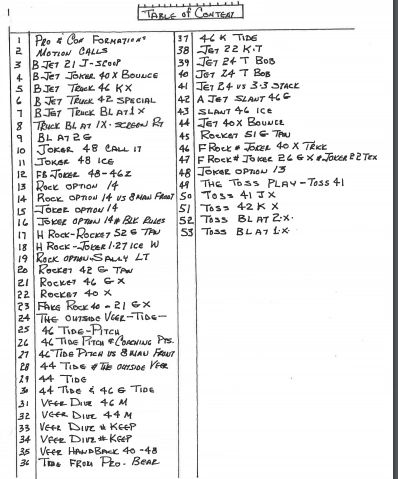 1
2
TABLE OF CONTENT
1 PRO & CON FORMATIONS
2 MOTION CALLS
3 B JET 21 J-SCOOP
4 B-JET JOKER 40X BOUNCE
5 B JET TRUCK 46 KX
6 B JET TRUCK 42 SPECIAL
7 B JET TRUCK BLAT 1X
8 TRUCK BLAT 1X-SCREEN RT
9 BLAT 2G
10 JOKER 48 CALL IT
11 JOKER 48 ICE
12 FB JOKER 48-46Z
13 ROCK OPTION 14
14 ROCK OPTION 14 VS 8 MAN FRONT
15 JOKER OPTION 14
16 JOKER OPTION 14# BLK RULES
17 H ROCK-ROCKET 52 G TAN
18 H ROCK-JOKER 1-27 ICE W
19 ROCK OPTION-SALLY LT
20 ROCKET 42 G TAN
21 ROCKET 46 G X
22 ROCKET 40 X
23 FAKE ROCK 40-21 G X
24 THE OUTSIDE VEER-TIDE-
25 46 TIDE-PITCH
26 46 TIDE PITCH & COACHING PTS.
27 46 TIDE PITCH VS 8 MAN FRONT
28 44 TIDE # THE OUTSIDE VEER
29 44 TIDE
30 44 TIDE & 46 G TIDE
31 VEER DIVE 46 M
32 VEER DIVE 44 M
33 VEER DIVE # KEEP
34 VEER DIVE # KEEP
35 VEER HANDBACK 40-48
36 TIDE FROM PRO-BEAR
37 46 K TIDE
38 JET 22 K.T
39 JET 24 T BOB
40 JET 24 T BOB
41 JET 24 VS 3-3 STACK
42 A JET SLANT 46 G
43 SLANT 46 ICE
44 JET 40X BOUNCE
45 ROCKET 51 G TAN
46 F ROCK # JOKER 40 X TRICK
47 F ROCK # JOKER 26 G X # JOKER 22 TEX
48 JOKER OPTION 13
49 THE TOSS PLAY-TOSS 41
50 TOSS 41 J X
51 TOSS 42 K X
52 TOSS BLAT 2X
53 TOSS BLAT 1X